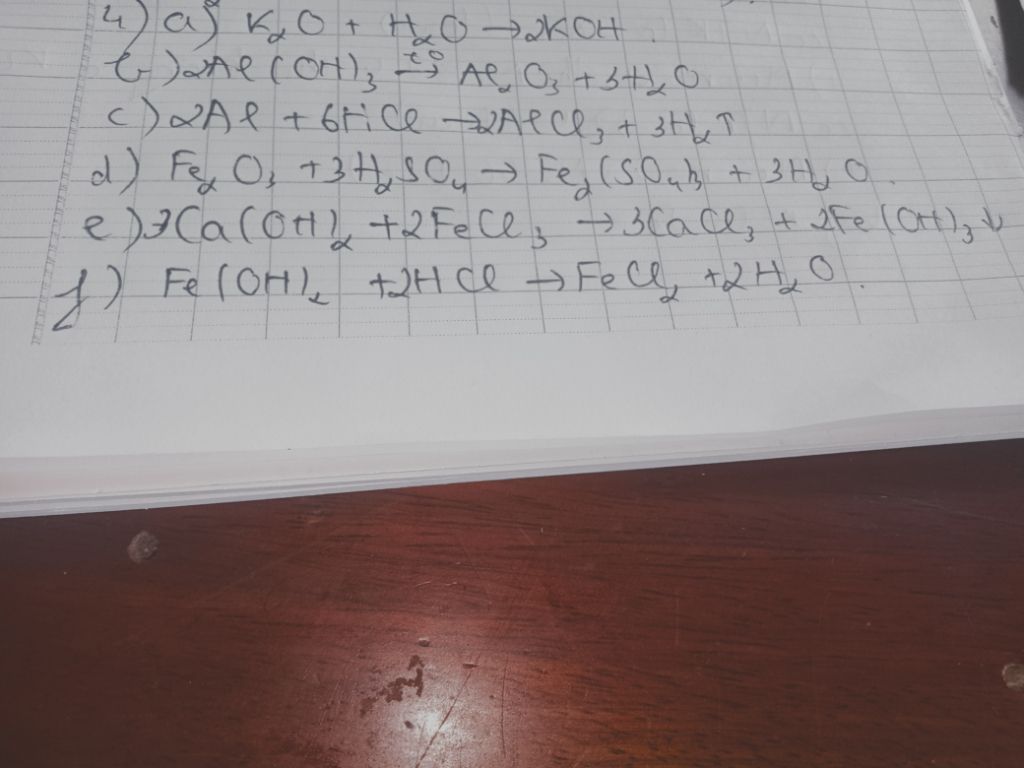 4) a) K₂O + H₂O → 2KOH.
b) 2Al(OH)₃ →^{t°} Al₂O₃ + 3H₂O
c) 2Al + 6HCl → 2AlCl₃ + 3H₂↑
d) Fe₂O₃ + 3H₂SO₄ → Fe₂(SO₄)₃ + 3H₂O.
e) 3Ca(OH)₂ + 2FeCl₃ → 3CaCl₃ + 2Fe(OH)₃↓
f) Fe(OH)₂ + 2HCl → FeCl₂ + 2H₂O.